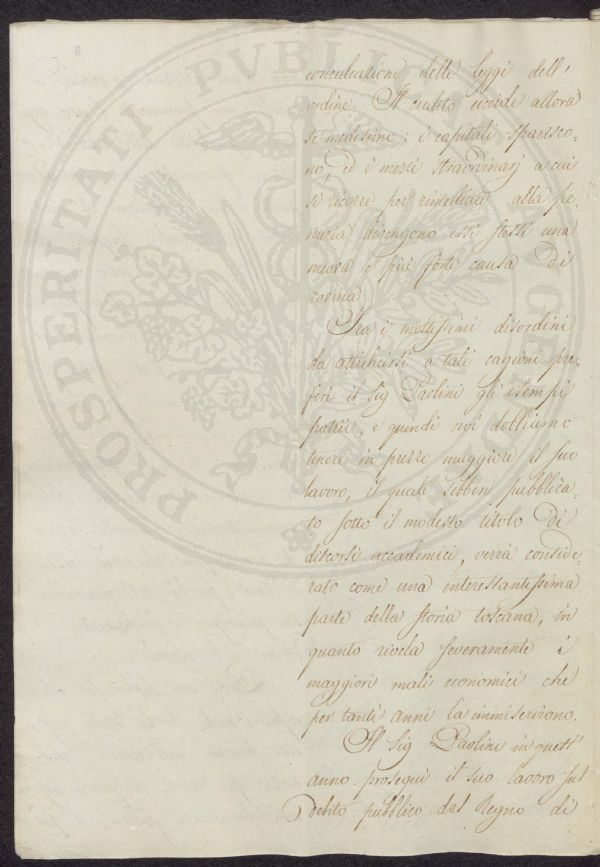 PROSPERITATI PVBLICAE AVGENDAE
conculcazione delle leggi dell'
ordine. Il credito uccide allora
se medesimo: i capitali sparisco=
no, ed i mezzi straordinarj a cui
si ricorre per rimediare alla pe=
nuria divengono essi stessi una
nuova e più forte causa di
rovina.
Tra i moltissimi disordini
da attribuirsi a tali cagioni pre=
ferì il Sig Paolini gli esempi
patrii, e quindi noi dobbiamo
tenere in prezzo maggiore il suo
lavoro, il quale sebben pubblica=
to sotto il modesto titolo di
discorsi accademici, verrà conside=
rato come una interessantissima
parte della storia toscana, in
quanto rivela severamente i
maggiori mali economici che
per tanti anni la immiserirono.
Il Sig Paolini in quest'
anno proseguì il suo lavoro sul
debito pubblico dal Regno di